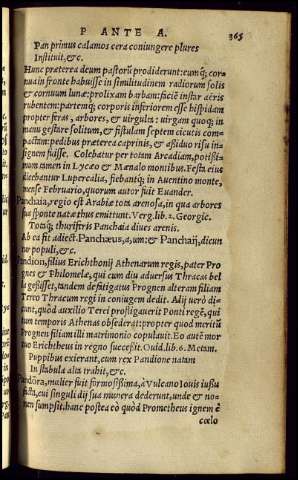 P ANTE A.
365
Pan primus calamos cera coniungere plures
Instituit, &c.
Hunc præterea deum pastorũ prodiderunt: eumq́; cor-
nua in fronte habuisse in similitudinem radiorum solis
& cornuum lunæ: prolixam barbam: faciẽ instar aëris
rubentem: partemq́; corporis inferiorem esse hispidam
propter feras, arbores, & virgulta: virgam quoq; in
manu gestare solitum, & fistulam septem cicutis com-
pactam: pedibus præterea caprinis, & assiduo risu in-
signem fuisse. Colebatur per totam Arcadiam, potissi-
mum autem in Lycæo & Mænalo montibus. Festa eius
dicebantur Lupercalia, fiebantq́; in Auentino monte,
mense Februario, quorum autor fuit Euander.
Panchaia, regio est Arabiæ tota arenosa, in qua arbores
sua sponte natæ thus emittunt. Verg. lib. 2. Georgic.
Totaq́; thuriferis Panchaia diues arenis.
Ab ea fit adiect. Panchæus, a, um: & Panchaij, dicun
tur populi, &c.
Pandion, filius Erichthonij Athenarum regis, pater Pro
gnes & Philomelæ, qui cum diu aduersus Thracas bel
la gessisset, tandem defatigatus Prognen alteram filiam
Tereo Thracum regi in coniugem dedit. Alij uerò di-
cunt, quòd auxilio Terei profligauerit Ponti regẽ, qui
tum temporis Athenas obsederat: propter quod meritũ
Prognen filiam illi matrimonio copulauit. Eo autẽ mor
tuo Erichtheus in regno successit. Ouid. lib. 6. Metam.
Puppibus exierant, cum rex Pandione natam
In stabula alta trahit, &c.
Pandora, mulier fuit formosissima, à Vulcano Iouis iussu
facta, cui singuli dij sua munera dederunt, unde & no-
men sumpsit. hanc postea eò quòd Prometheus ignem è
cœlo